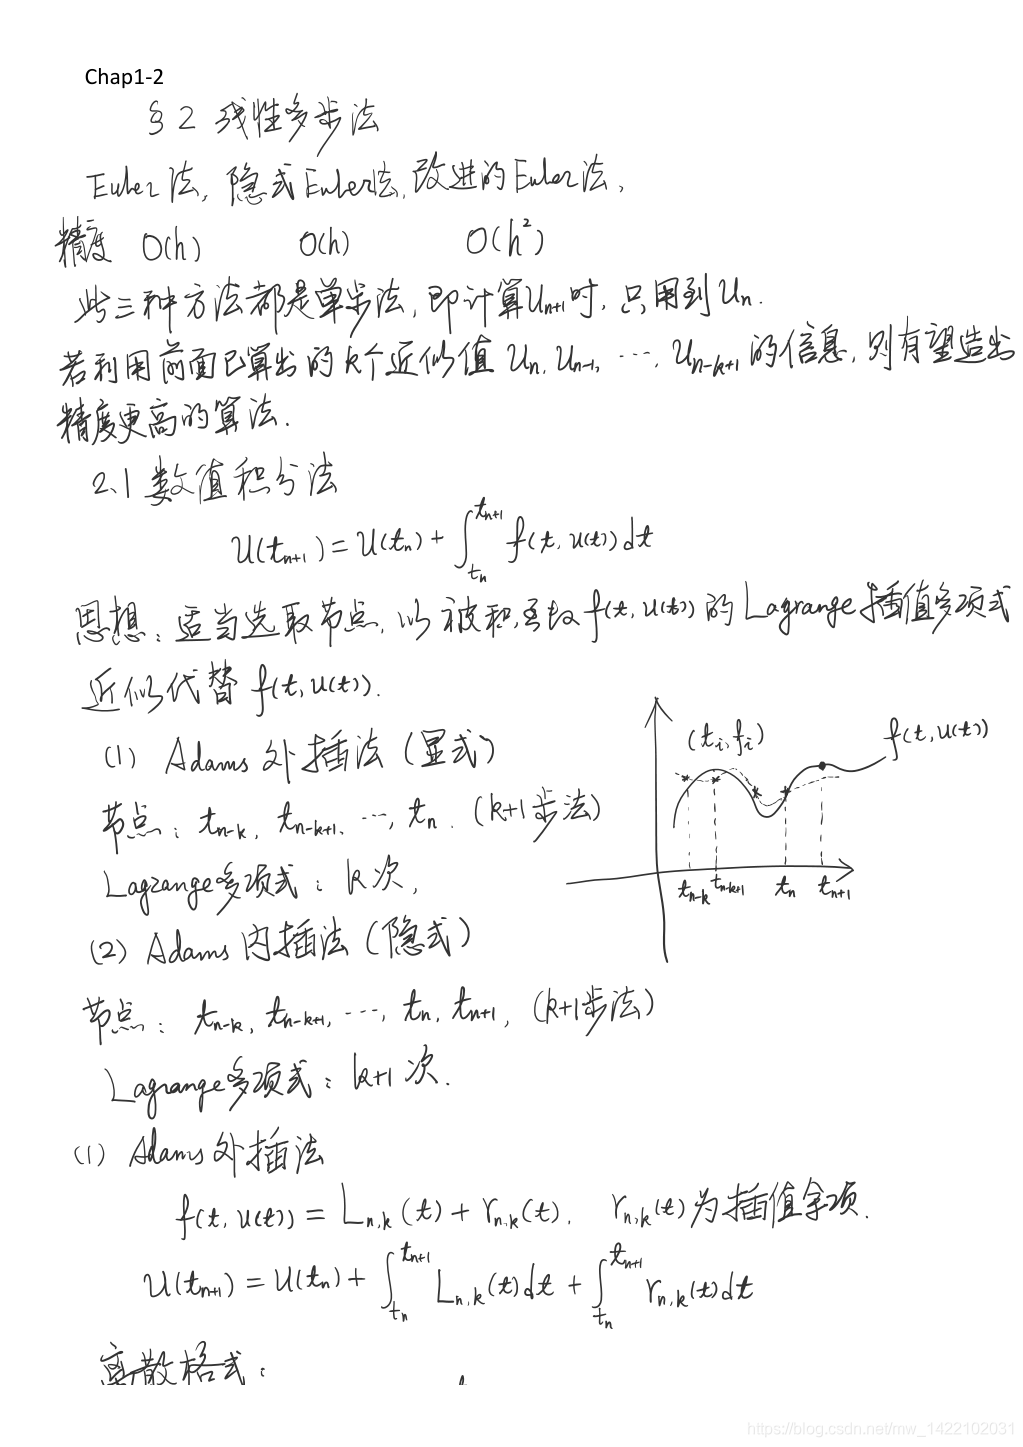 Chap1-2
§2 线性多步法
Euler法, 隐式Euler法, 改进的Euler法,
精度 O(h) O(h) O(h²)
此三种方法都是单步法, 即计算Uₙ₊₁时, 只用到Uₙ.
若利用前面已算出的k个近似值 Uₙ, Uₙ₋₁, ⋯, Uₙ₋ₖ₊₁ 的信息, 则有望造出
精度更高的算法.
2.1 数值积分法
U(tₙ₊₁) = U(tₙ) + ∫_{tₙ}^{tₙ₊₁} f(t, u(t)) dt
思想: 适当选取节点, 以被积函数 f(t, u(t)) 的 Lagrange 插值多项式
近似代替 f(t, u(t)).
(1) Adams 外插法 (显式)
节点: tₙ₋ₖ, tₙ₋ₖ₊₁, ⋯, tₙ. (k+1步法)
Lagrange多项式: k次,
(tᵢ, fᵢ) f(t, u(t))
tₙ₋ₖ tₙ₋ₖ₊₁ tₙ tₙ₊₁
(2) Adams 内插法 (隐式)
节点: tₙ₋ₖ, tₙ₋ₖ₊₁, ⋯, tₙ, tₙ₊₁, (k+1步法)
Lagrange多项式: k+1 次.
(1) Adams 外插法
f(t, u(t)) = Lₙ,ₖ(t) + rₙ,ₖ(t), rₙ,ₖ(t) 为插值余项.
U(tₙ₊₁) = U(tₙ) + ∫_{tₙ}^{tₙ₊₁} Lₙ,ₖ(t) dt + ∫_{tₙ}^{tₙ₊₁} rₙ,ₖ(t) dt
离散格式:
https://blog.csdn.net/mw_1422102031